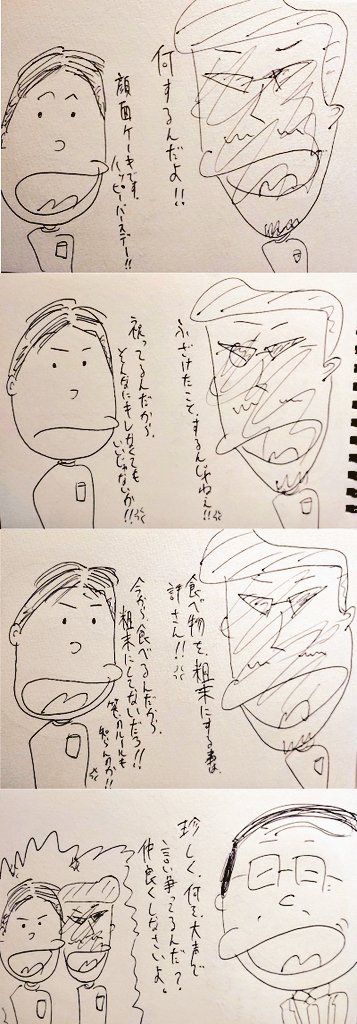 何するんだよ!!
顔面ケーキです。
ハッピーバースデー!!
ふざけたこと、するんじゃねぇ!!
祝ってるんだから、
そんなにキレなくても
いいじゃないか!!
食べ物を、粗末にする事は、
許さん!!
今から食べるんだから、
粗末にしてないだろ!!
笑いのルールも
知らんのか!!
珍しく、何を、大声で
言い争ってるんだ?
仲良くしなさいよ。